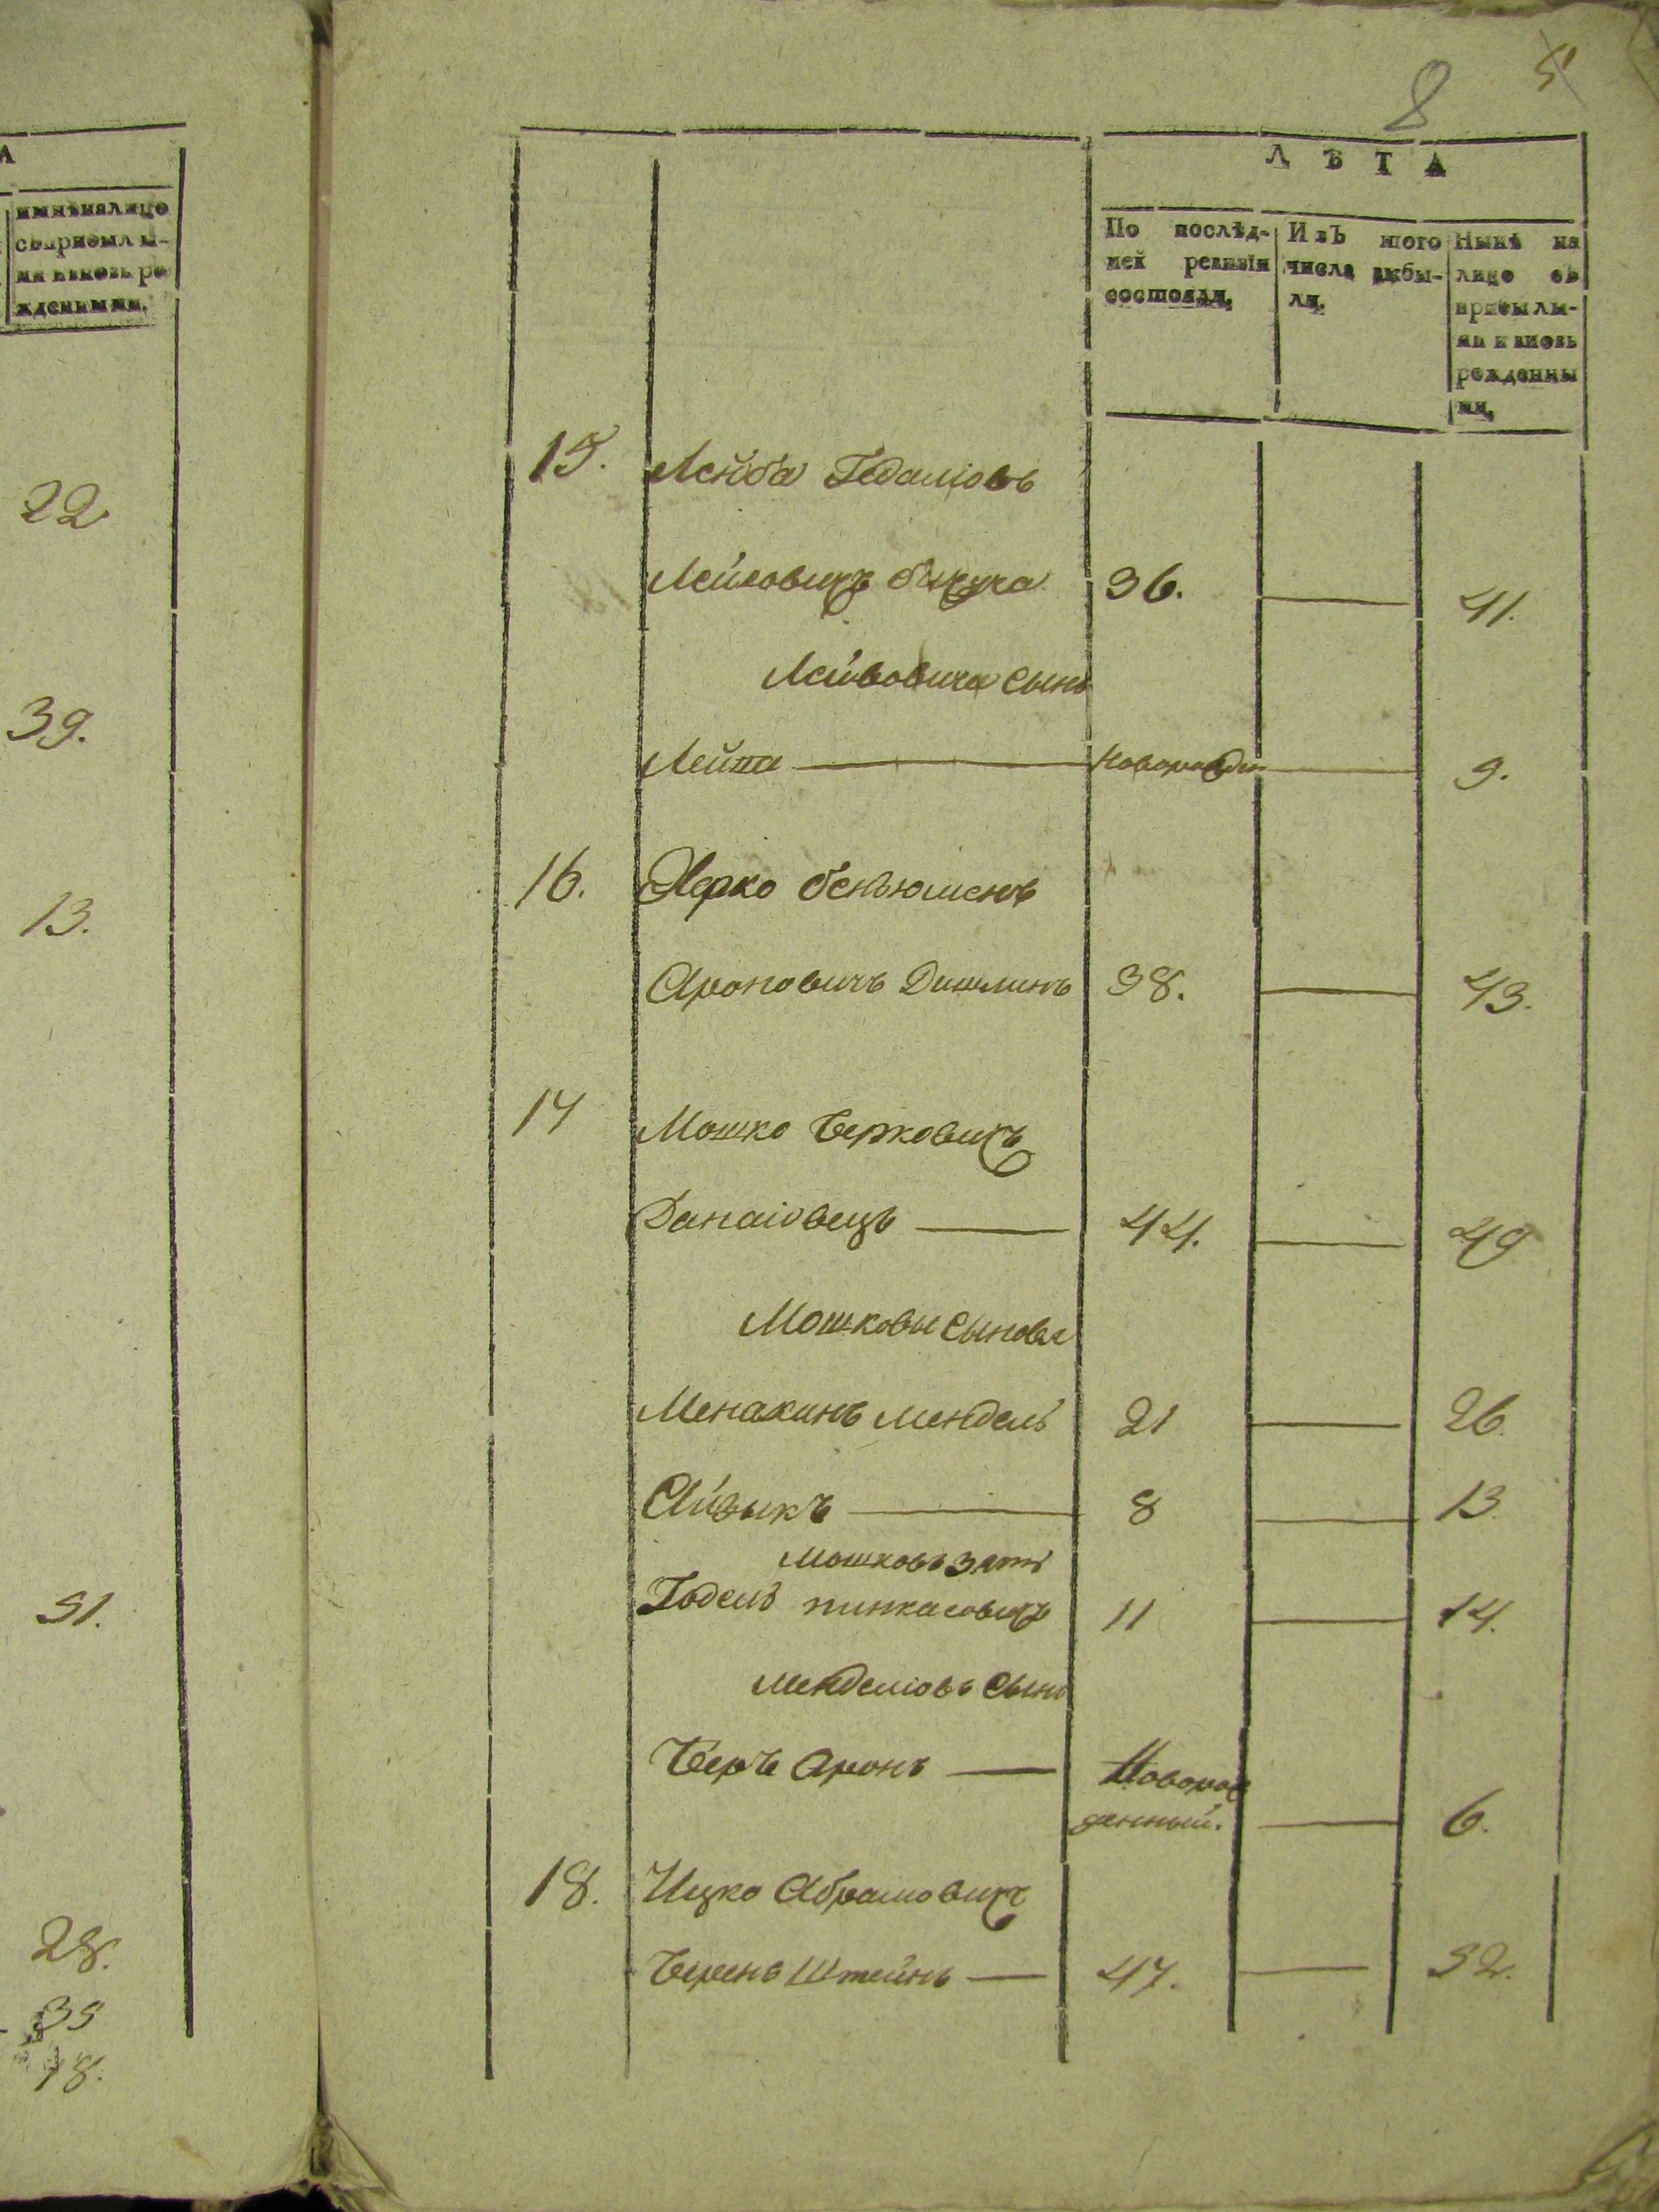 А
нынѣ на лице
съ прибылы-
ми и вновь ро
жденными.
22
39.
13.
51.
28.
35
18.
8 5
ЛѢТА
По послѣд-
ней ревизіи
состояли,
Изъ того
числа выбы-
ли,
Нынѣ на
лицо съ
прибылы-
ми и вновь
рожденны
ми,
15. Лейба Гедаліовъ
Лейбовичъ 36. 41.
Лейбовича сынъ
Лейба Новорожден 9.
16. Герко беньюменъ
Ароновичъ Дишлинъ 38. 43.
17 Мошко Берковичъ
Данаіовецъ 44. 49
Мошковы сыновя
Менахинъ мендель 21 26.
Айзыкъ 8 13.
Мошковъ зять
Іодель пинкасовичъ 11 14.
Менделіовъ сынъ
Беръ Аронъ Новорож
денный. 6.
18. Ицко Абрамовичъ
Беренъ Штейнъ 47. 52.